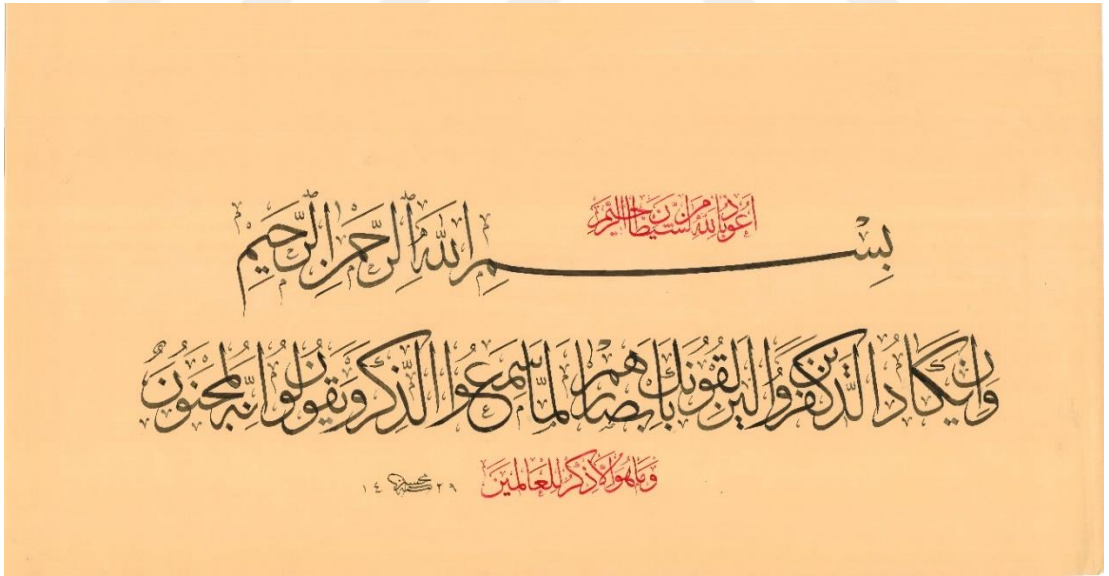 أَعُوذُ بِاللهِ مِنَ الشَّيْطَانِ الرَّجِيمِ
بِسْمِ اللهِ الرَّحْمَنِ الرَّحِيمِ
وَإِنْ يَكَادُ الَّذِينَ كَفَرُوا لَيُزْلِقُونَكَ بِأَبْصَارِهِمْ لَمَّا سَمِعُوا الذِّكْرَ وَيَقُولُونَ إِنَّهُ لَمَجْنُونٌ
وَمَا هُوَ إِلَّا ذِكْرٌ لِلْعَالَمِينَ
١٤٢٩